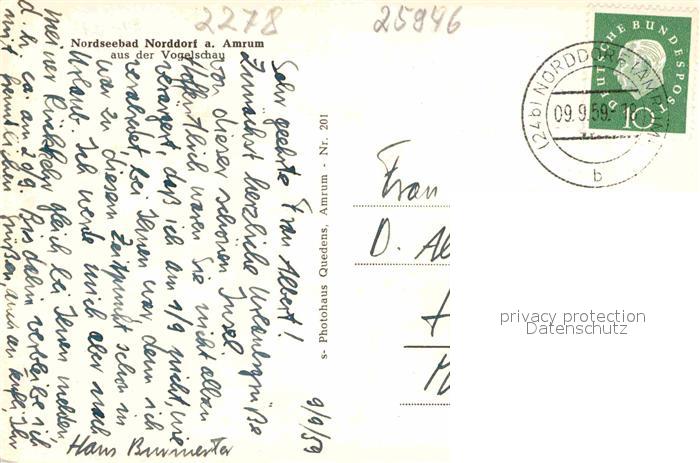 2278
25946
Nordseebad Norddorf a. Amrum
aus der Vogelschau
DEUTSCHE BUNDESPOST
10
(24b) NORDDORF (AMRUM)
09.9.59.-18
b
s- Photohaus Quedens, Amrum - Nr. 201
9/9/59
Sehr geehrte Frau Albert!
Zunächst herzliche Urlaubsgrüße
von dieser schönen Insel.
Hoffentlich waren Sie nicht allzu
verärgert, daß ich am 1/9 nicht, wie
verabredet, bei Ihnen war, denn ich
war zu diesem Zeitpunkt schon in
Urlaub. Ich werde mich aber nach
meiner Rückkehr gleich bei Ihnen melden
d.h. ca. am 20/9. Bis dahin verbleibe ich
mit herzlichen Grüßen, auch an Ihr
Hans Burmester
Frau
D. Al
privacy protection
Datenschutz